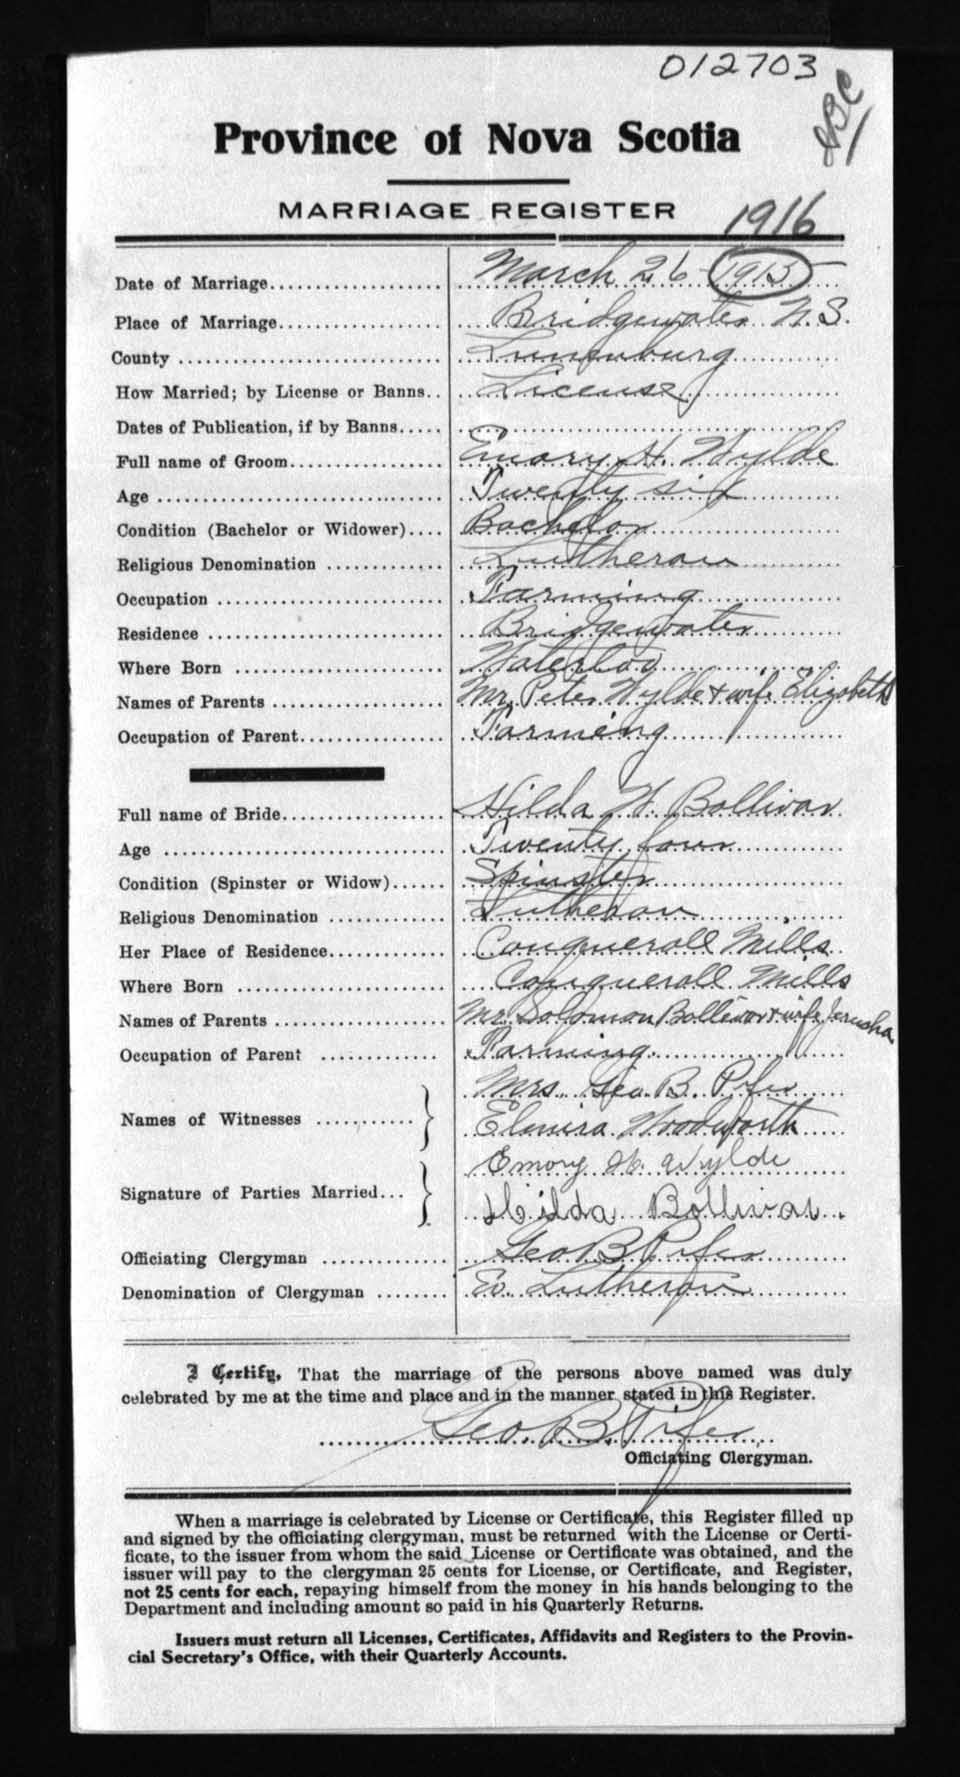 012703
Province of Nova Scotia
MARRIAGE REGISTER
1916
Date of Marriage March 26 1915
Place of Marriage Bridgewater N.S.
County Lunenburg
How Married; by License or Banns License
Dates of Publication, if by Banns
Full name of Groom Emory H. Wylde
Age Twenty six
Condition (Bachelor or Widower) Bachelor
Religious Denomination Lutheran
Occupation Farming
Residence Bridgewater
Where Born Waterloo
Names of Parents Mr. Peter Wylde & wife Elizabeth
Occupation of Parent Farming
Full name of Bride Hilda W. Bollivar
Age Twenty four
Condition (Spinster or Widow) Spinster
Religious Denomination Lutheran
Her Place of Residence Conquerall Mills
Where Born Conquerall Mills
Names of Parents Mr. Solomon Bollivar & wife Jerusha
Occupation of Parent Farming
Mrs. Geo. B. Pifer
Names of Witnesses
Elmira Woodworth
Emory H. Wylde
Signature of Parties Married
Hilda Bollivar.
Officiating Clergyman Geo B Pifer
Denomination of Clergyman Ev. Lutheran
I Certify, That the marriage of the persons above named was duly
celebrated by me at the time and place and in the manner stated in this Register.
Geo. B. Pifer
Officiating Clergyman.
When a marriage is celebrated by License or Certificate, this Register filled up
and signed by the officiating clergyman, must be returned with the License or Certi-
ficate, to the issuer from whom the said License or Certificate was obtained, and the
issuer will pay to the clergyman 25 cents for License, or Certificate, and Register,
not 25 cents for each, repaying himself from the money in his hands belonging to the
Department and including amount so paid in his Quarterly Returns.
Issuers must return all Licenses, Certificates, Affidavits and Registers to the Provin-
cial Secretary's Office, with their Quarterly Accounts.